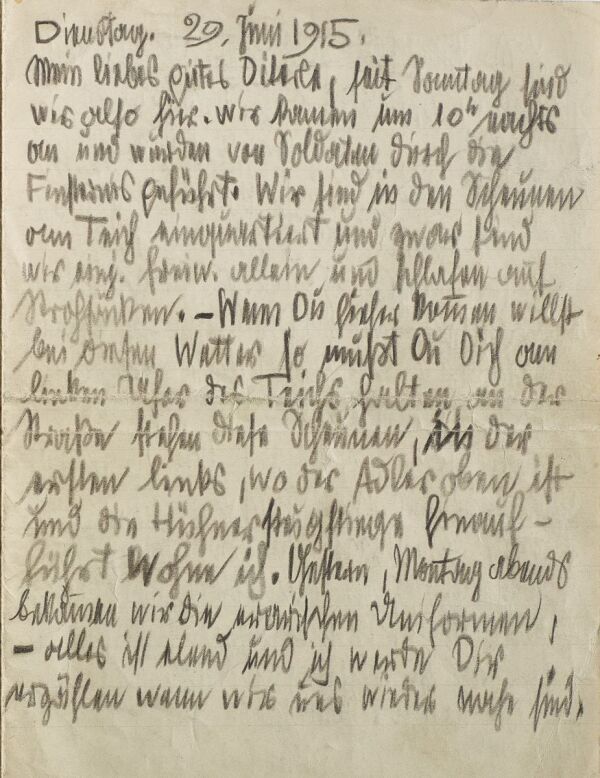 Dienstag. 29. Juni 1915.
Mein liebes gutes Diterle, seit Sonntag sind
wir also hier. wir kamen um 10h nachts
an und wurden von Soldaten durch die
Finsternis geführt. Wir sind in den Scheunen
am Teich einquartiert und zwar sind
wir einj. freiw. allein und schlafen auf
Strohsäcken. – Wenn Du hieher kom̅en willst
bei diesem Wetter so mußt Du Dich am
linken Ufer des Teichs halten, an der
Straße stehen diese Scheunen, in der
ersten links, wo der Adler oben ist
und die Hühnersteigstiege hinauf-
führt wohne ich. Gestern, Montag abends
bekamen wir die Uniformen,
– alles ist elend und ich werde Dir
erzählen wenn wir uns wieder nahe sind.